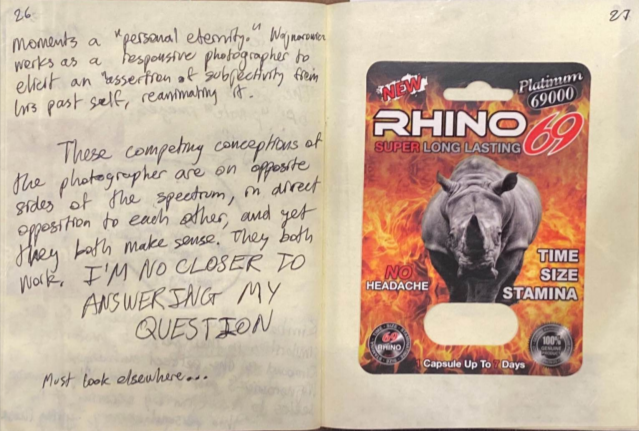 26
moments a "personal eternity." Wojnarowicz
works as a responsive photographer to
elicit an assertion of subjectivity from
his past self, reanimating it.
These competing conceptions of
the photographer are on opposite
sides of the spectrum, in direct
opposition to each other, and yet
they both make sense. They both
work. I'M NO CLOSER TO
ANSWERING MY
QUESTION
Must look elsewhere...
27
NEW
Platinum
69000
RHINO 69
SUPER LONG LASTING
NO
HEADACHE
TIME
SIZE
STAMINA
69
RHINO
100%
GENUINE
1 Capsule Up To 7 Days